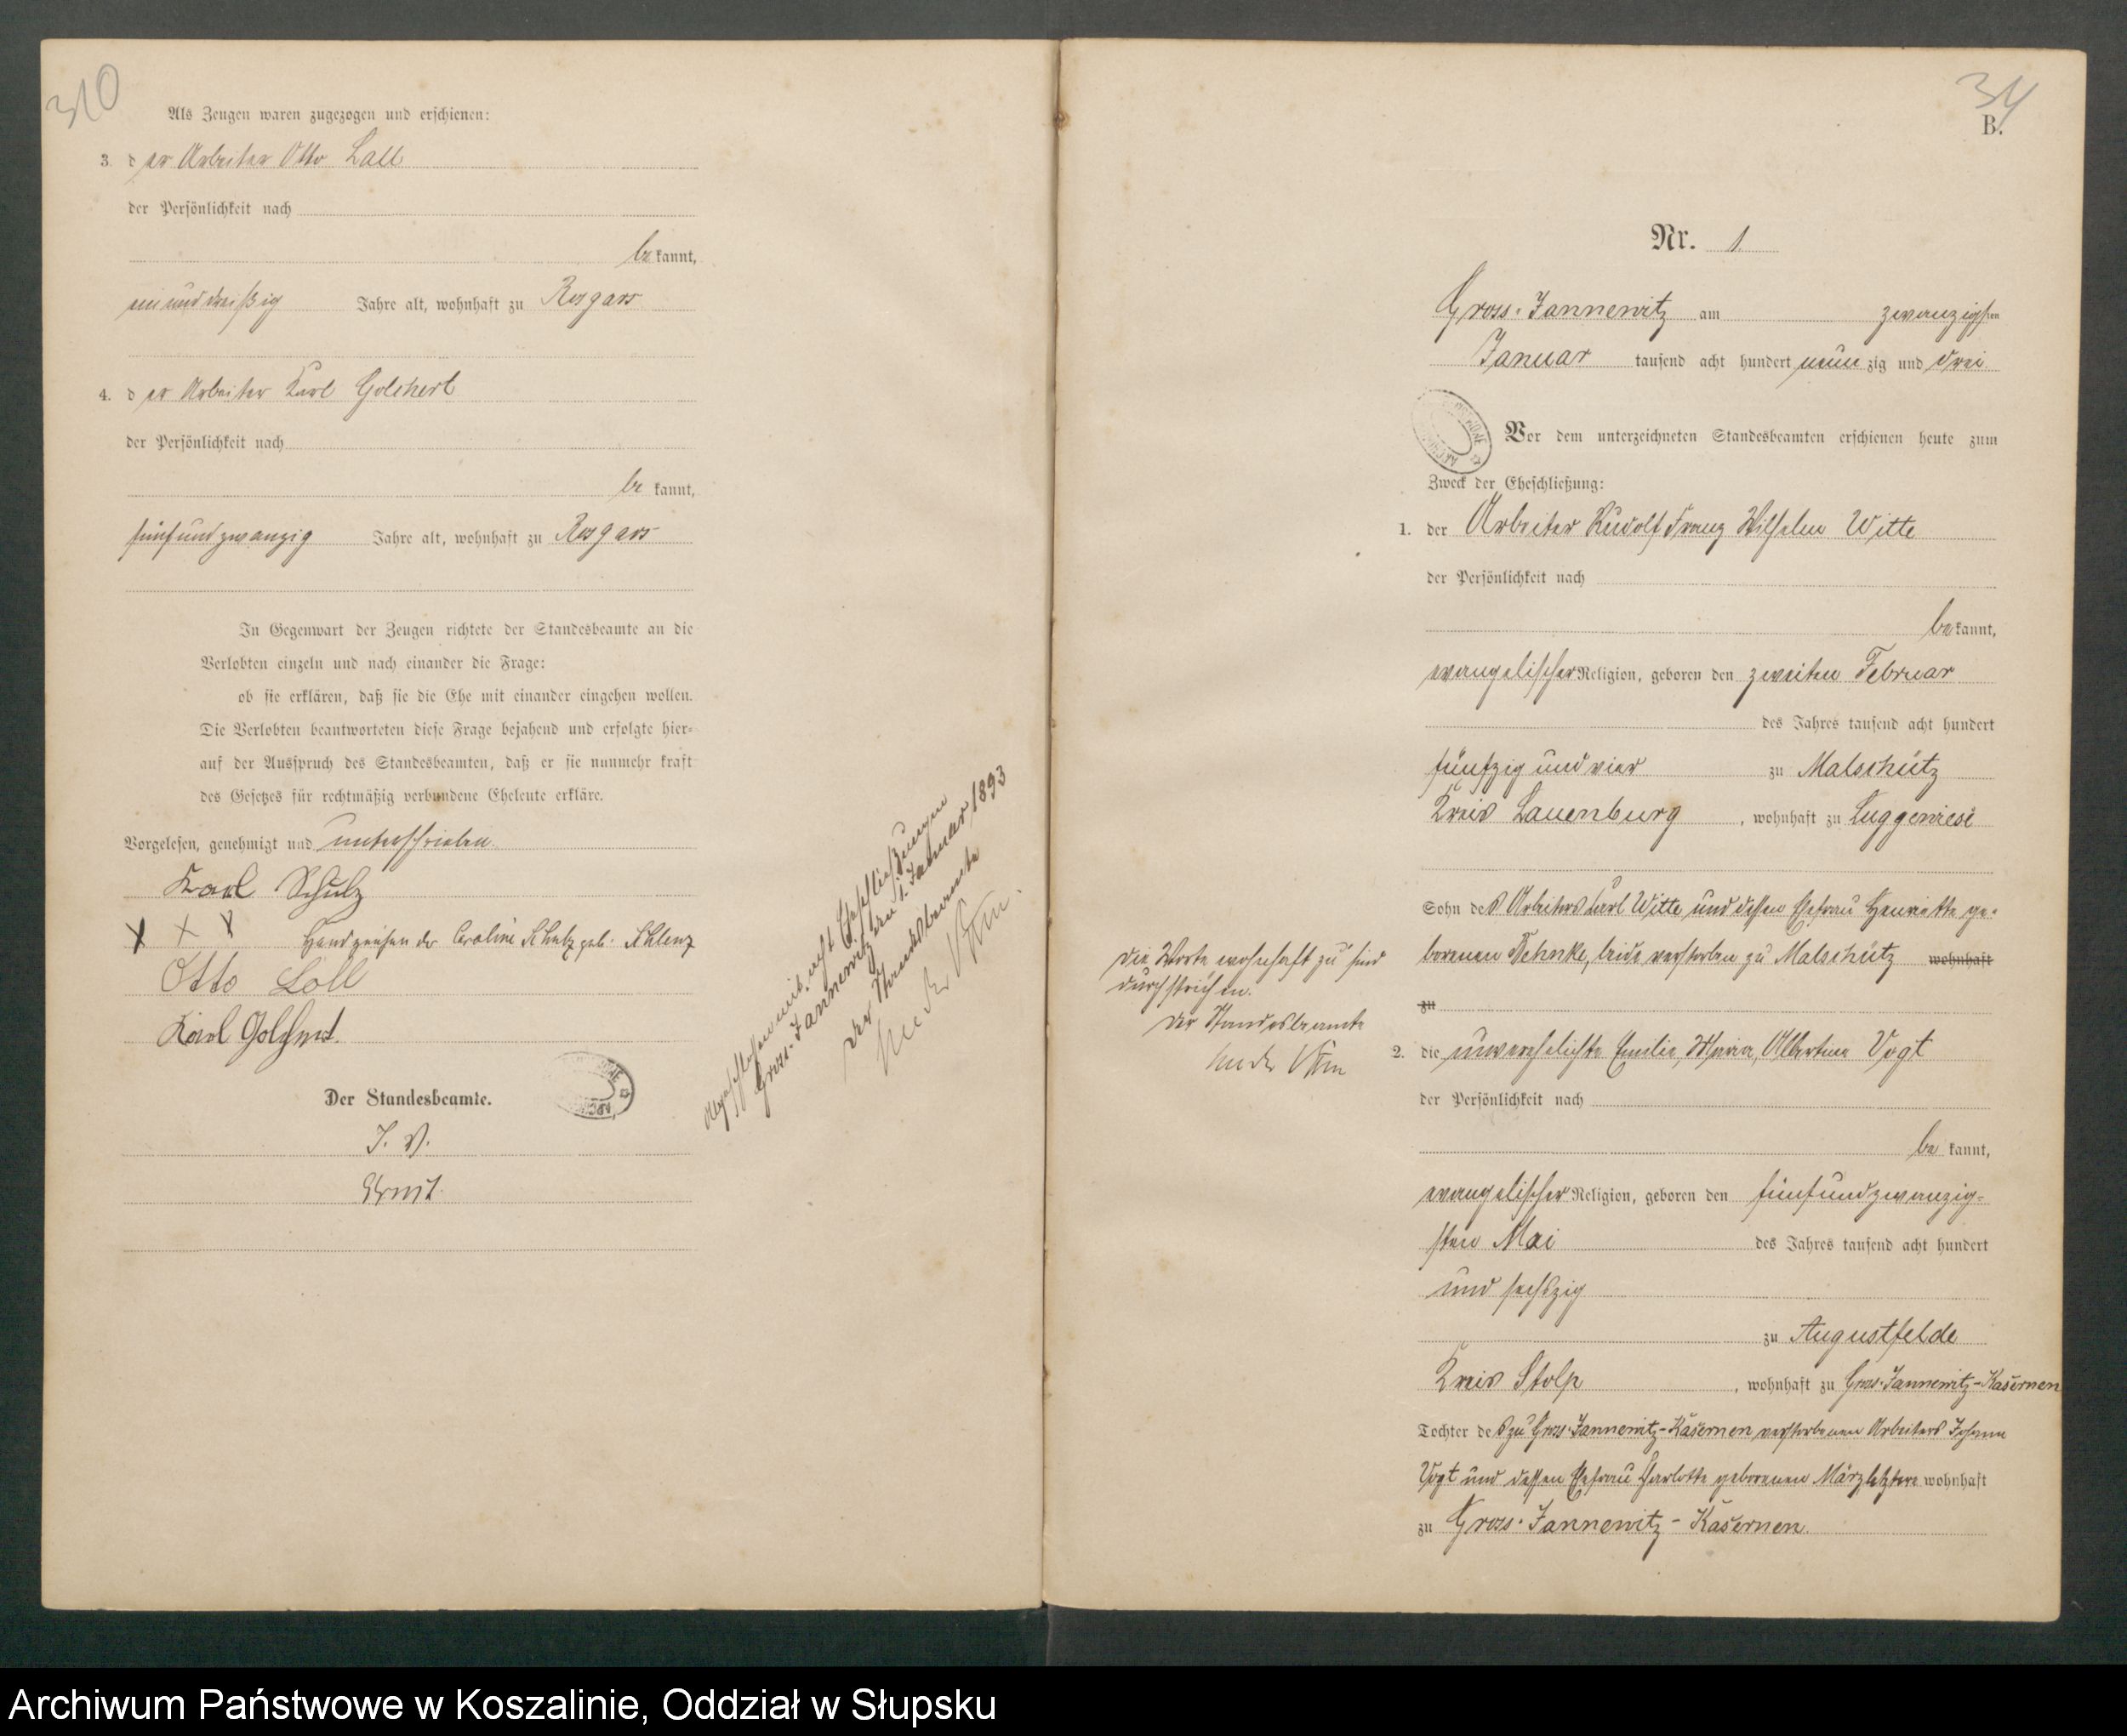 310
Als Zeugen waren zugezogen und erschienen:
3. der Arbeiter Otto Lall
der Persönlichkeit nach
bekannt,
einunddreißig Jahre alt, wohnhaft zu Rosgars
4. der Arbeiter Karl Golchert
der Persönlichkeit nach
bekannt,
fünfundzwanzig Jahre alt, wohnhaft zu Rosgars
In Gegenwart der Zeugen richtete der Standesbeamte an die
Verlobten einzeln und nach einander die Frage:
ob sie erklären, daß sie die Ehe mit einander eingehen wollen.
Die Verlobten beantworteten diese Frage bejahend und erfolgte hier-
auf der Ausspruch des Standesbeamten, daß er sie nunmehr kraft
des Gesetzes für rechtmäßig verbundene Eheleute erkläre.
Vorgelesen, genehmigt und unterschrieben
Karl Schulz
X X X Handzeichen der Caroline Schulz geb. Schlenz
Otto Loll
Karl Golchert.
Der Standesbeamte.
J. V.
Ernst.
Abgeschlossen mit acht Eheschließungen
Gross-Jannewitz den 1. Januar 1893
Der Standesbeamte
34
B.
Nr. 1
Gross-Jannewitz am zwanzigsten
Januar tausend acht hundert neunzig und drei
Vor dem unterzeichneten Standesbeamten erschienen heute zum
Zweck der Eheschließung:
1. der Arbeiter Rudolf Franz Wilhelm Witte
der Persönlichkeit nach
bekannt,
evangelischer Religion, geboren den zweiten Februar
des Jahres tausend acht hundert
fünfzig und vier zu Malschütz
Kreis Lauenburg, wohnhaft zu Luggewiese
Sohn des Arbeiters Karl Witte und dessen Ehefrau Henriette ge-
borenen Behnke, beide verstorben zu Malschütz wohnhaft
zu
Die Worte wohnhaft zu sind
durchstrichen.
Der Standesbeamte
2. die unverehelichte Emilie, Maria, Albertine Vogt
der Persönlichkeit nach
bekannt,
evangelischer Religion, geboren den fünfundzwanzig-
sten Mai des Jahres tausend acht hundert
und sechszig
zu Augustfelde
Kreis Stolp, wohnhaft zu Gross-Jannewitz-Kasernen
Tochter des zu Gross-Jannewitz-Kasernen verstorbenen Arbeiters Johann
Vogt und dessen Ehefrau Charlotte geborenen März letztere wohnhaft
zu Gross-Jannewitz-Kasernen.
Archiwum Państwowe w Koszalinie, Oddział w Słupsku